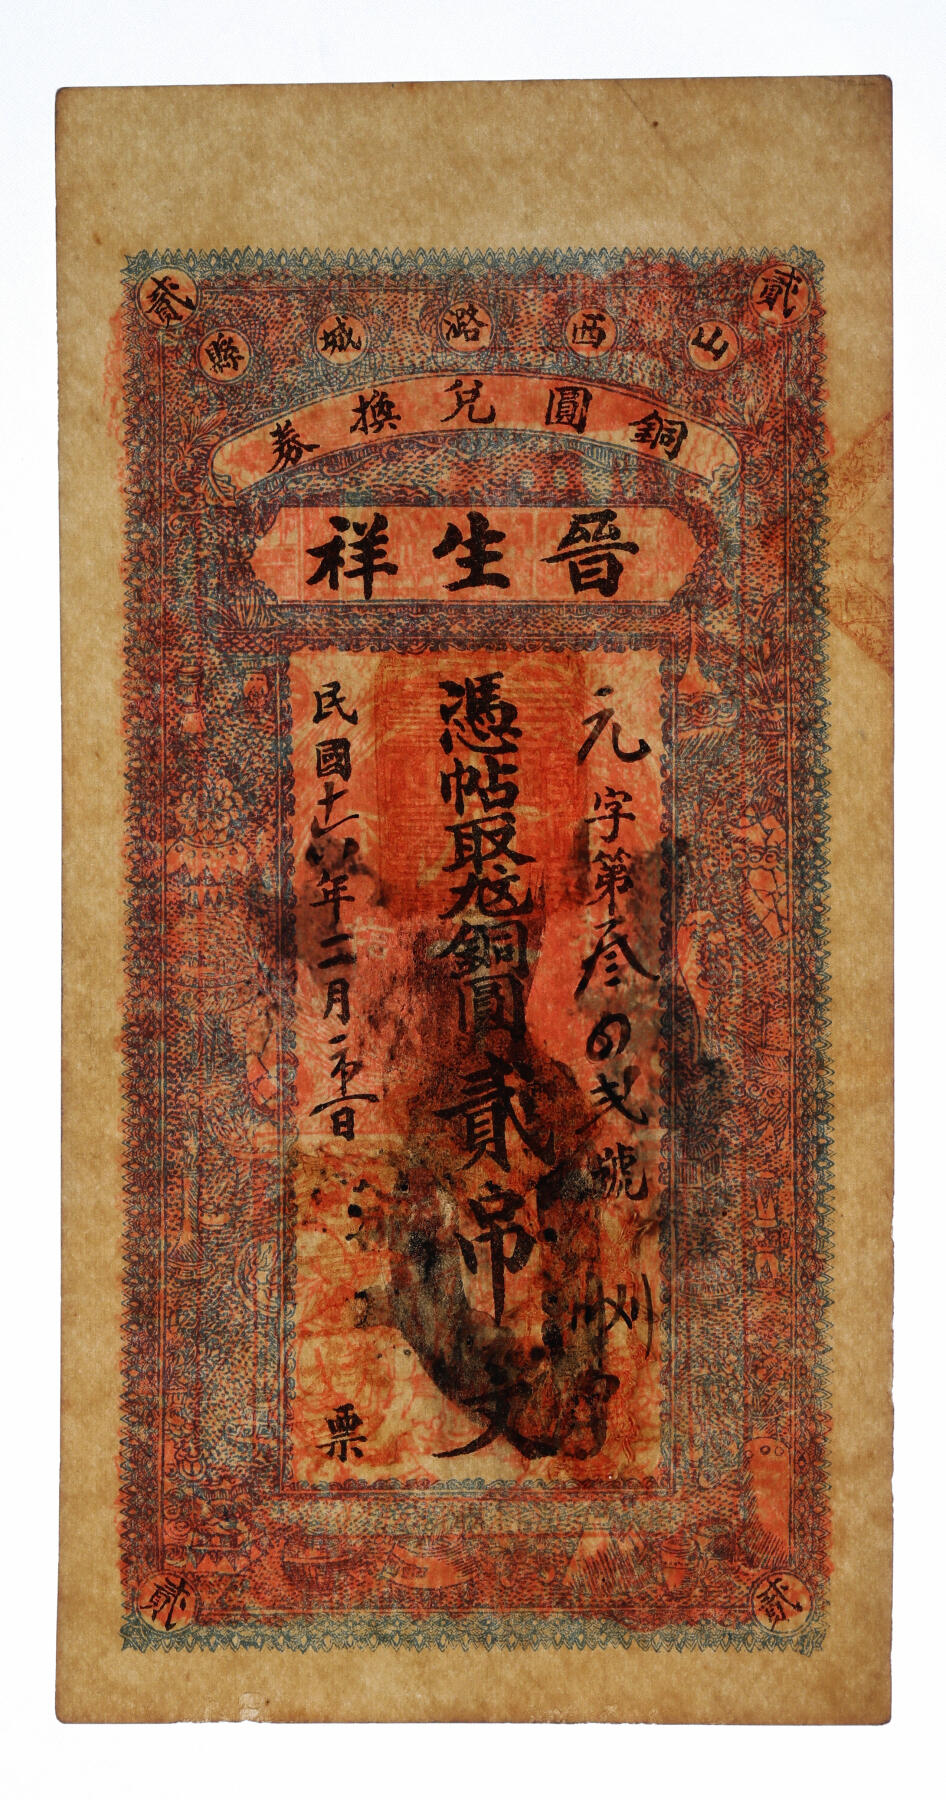 貳 貳
山西潞城縣
銅圓兌換券
晉生祥
元字第叁四弍號
憑帖取足銅圓貳吊文
民國十六年二月初一日
票
貳 貳